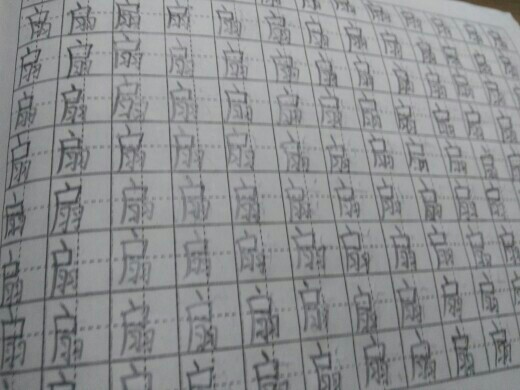 扇扇扇扇扇扇扇
扇扇扇扇扇扇扇扇扇扇扇扇扇
扇扇扇扇扇扇扇扇扇扇扇扇
扇扇扇扇扇扇扇扇扇扇扇扇
扇扇扇扇扇扇扇扇扇扇扇扇
扇扇扇扇扇扇扇扇扇扇扇
扇扇扇扇扇扇扇扇扇扇扇
扇扇扇扇扇扇扇扇扇扇扇
扇扇扇扇扇扇扇